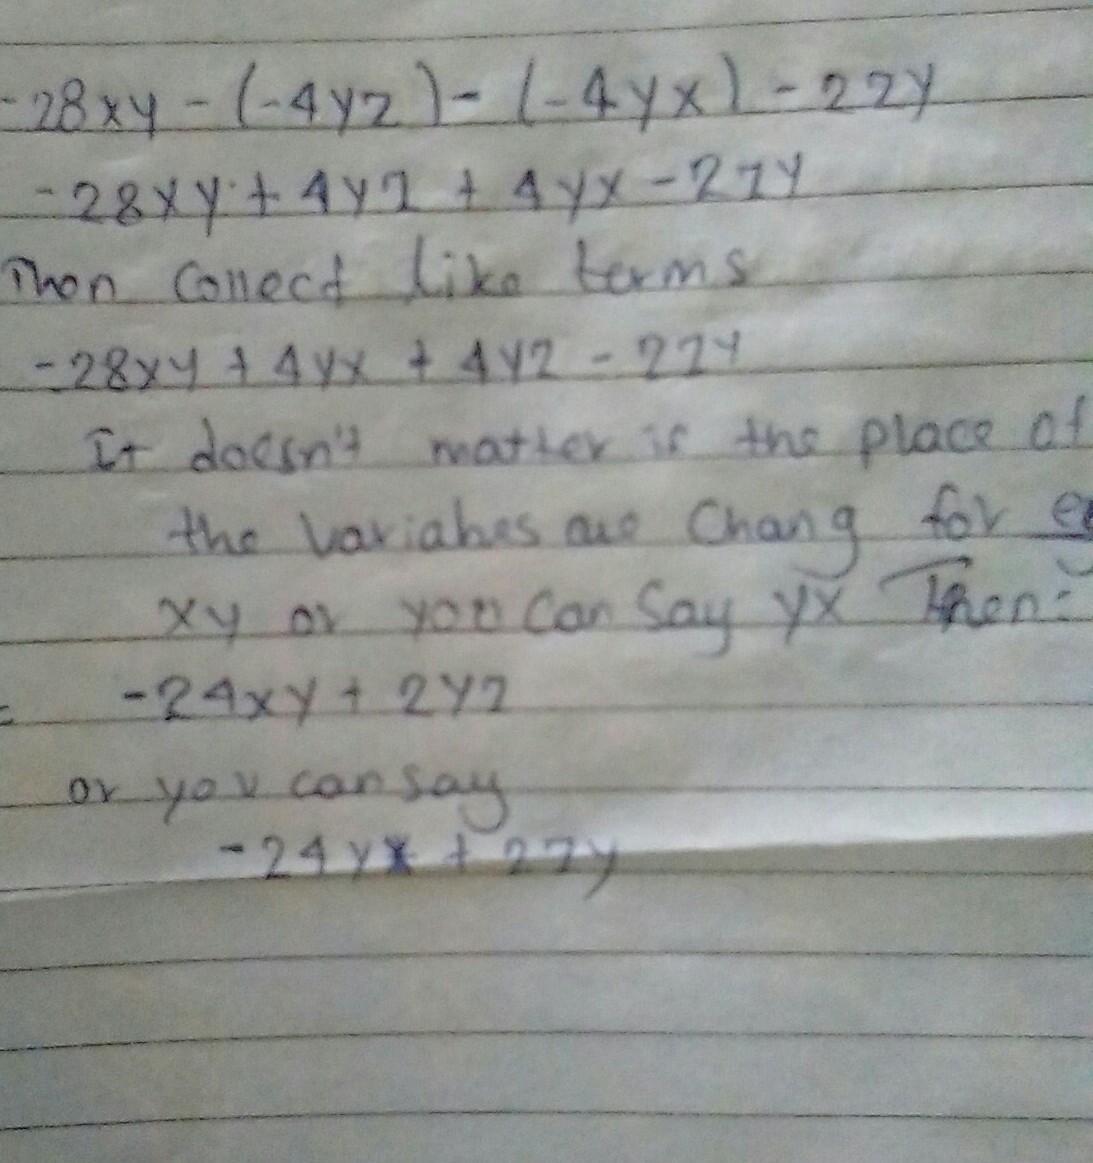 -28xy - (-4yz) - (-4yx) - 2zy
-28xy + 4yz + 4yx - 2zy
Then Collect like terms
-28xy + 4yx + 4yz - 2zy
It doesn't matter if the place of
the variabes are Chang for eg
xy or you can say yx Then:
= -24xy + 2yz
or you can say
-24yx + 2zy